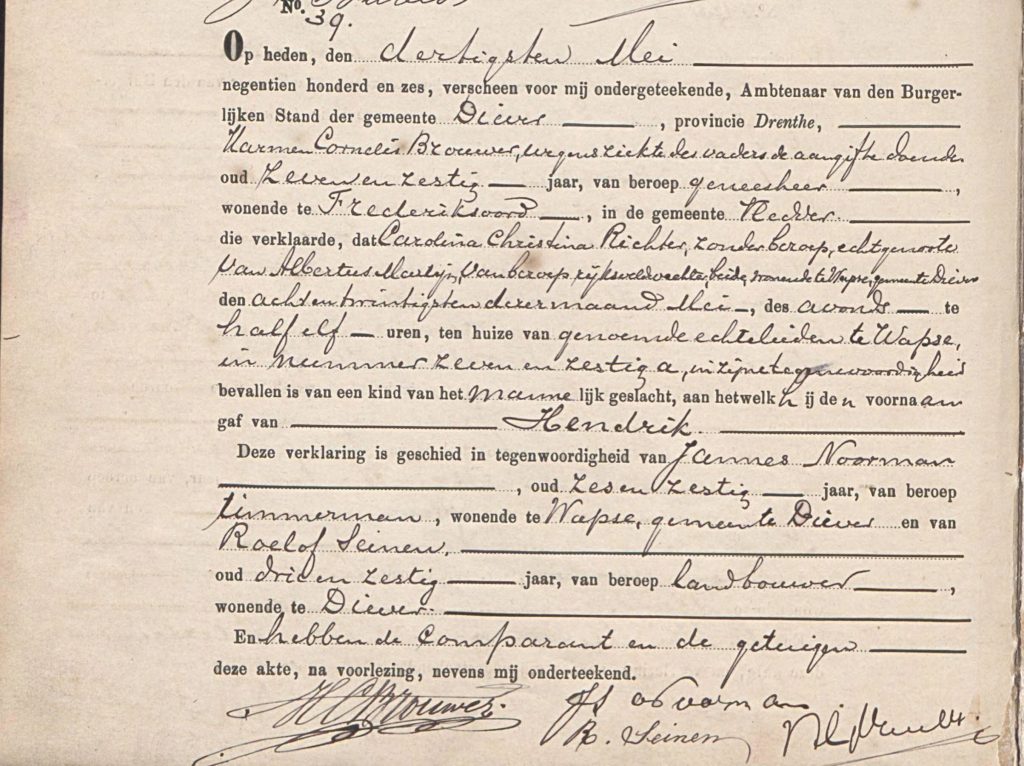 No. 39.
Op heden, den dertigsten Mei
negentien honderd en zes, verscheen voor mij ondergeteekende, Ambtenaar van den Burger-
lijken Stand der gemeente Diever, provincie Drenthe,
Harmen Cornelis Brouwer, wegens ziekte des vaders de aangifte doende
oud zeven en zestig jaar, van beroep geneesheer,
wonende te Frederiksoord, in de gemeente Vledder.
die verklaarde, dat Carolina Christina Richter, zonder beroep, echtgenoote
van Albertus Martijn, van beroep rijksveldwachter, beide wonende te Wapse, gemeente Diever
den acht en twintigsten dezer maand Mei, des avonds te
half elf uren, ten huize van genoemde echtelieden te Wapse,
in nummer zeven en zestig a, in zijne tegenwoordigheid
bevallen is van een kind van het mannelijk geslacht, aan hetwelk hij den voornaam
gaf van Hendrik.
Deze verklaring is geschied in tegenwoordigheid van Jannes Noorman
, oud zes en zestig jaar, van beroep
timmerman, wonende te Wapse, gemeente Diever en van
Roelof Seinen,
oud drie en zestig jaar, van beroep landbouwer,
wonende te Diever.
En hebben de comparant en de getuigen
deze akte, na voorlezing, nevens mij onderteekend.
HCBrouwer.
Js Noorman
R. Seinen